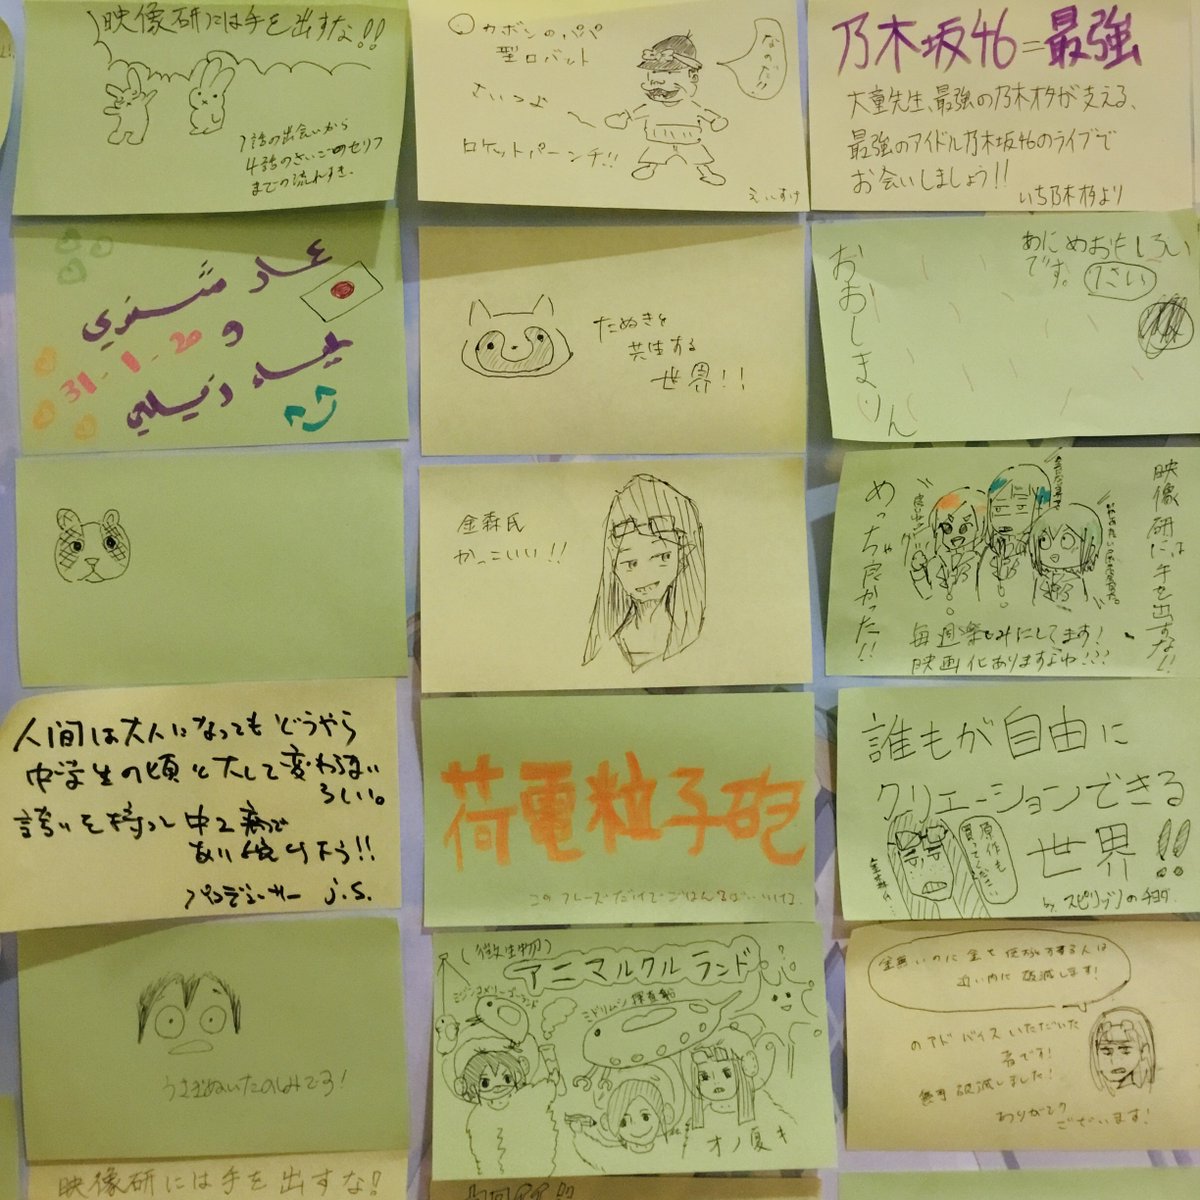 映像研には手を出すな!!
1話の出会いから
4話のさいごのセリフ
までの流れすき.
カボンのパパ
型ロボット
さいつよ
ロケットパーンチ!!
なのだ!!
えいすけ
乃木坂46=最強
大童先生、最強の乃木オタが支える、
最強のアイドル乃木坂46のライブで
お会いしましょう!!
いち乃木オタより
عماد
و
31-1-20
たぬきと
共生する
世界!!
あにめおもしろい
です。
おおしまりん
金森氏
かっこいい!!
映像研には手を出すな!!
めっちゃ良かった!!
毎週楽しみにしてます!
映画化ありますよね!!?
人間は大人になってもどうやら
中学生の頃と大して変わらない
らしい。
誇りを持って中2病で
あり続けよう!!
J.S.
荷電粒子砲
このフレーズだけでごはん3ばいいける.
誰もが自由に
クリエーションできる
世界!!
原作も
買ってください
by スピリッツのチヨダ
うさぎぬいたのしみです!
(微生物)
アニマルクルランド
ミジンコメリーゴーランド
ミドリムシ探査船
オノ夏キ
金無いのに金を使おうとする人は
近い内に破滅します!
のアドバイスいただいた
者です!
無事破滅しました!
ありがとう
ございます!
映像研には手を出すな!